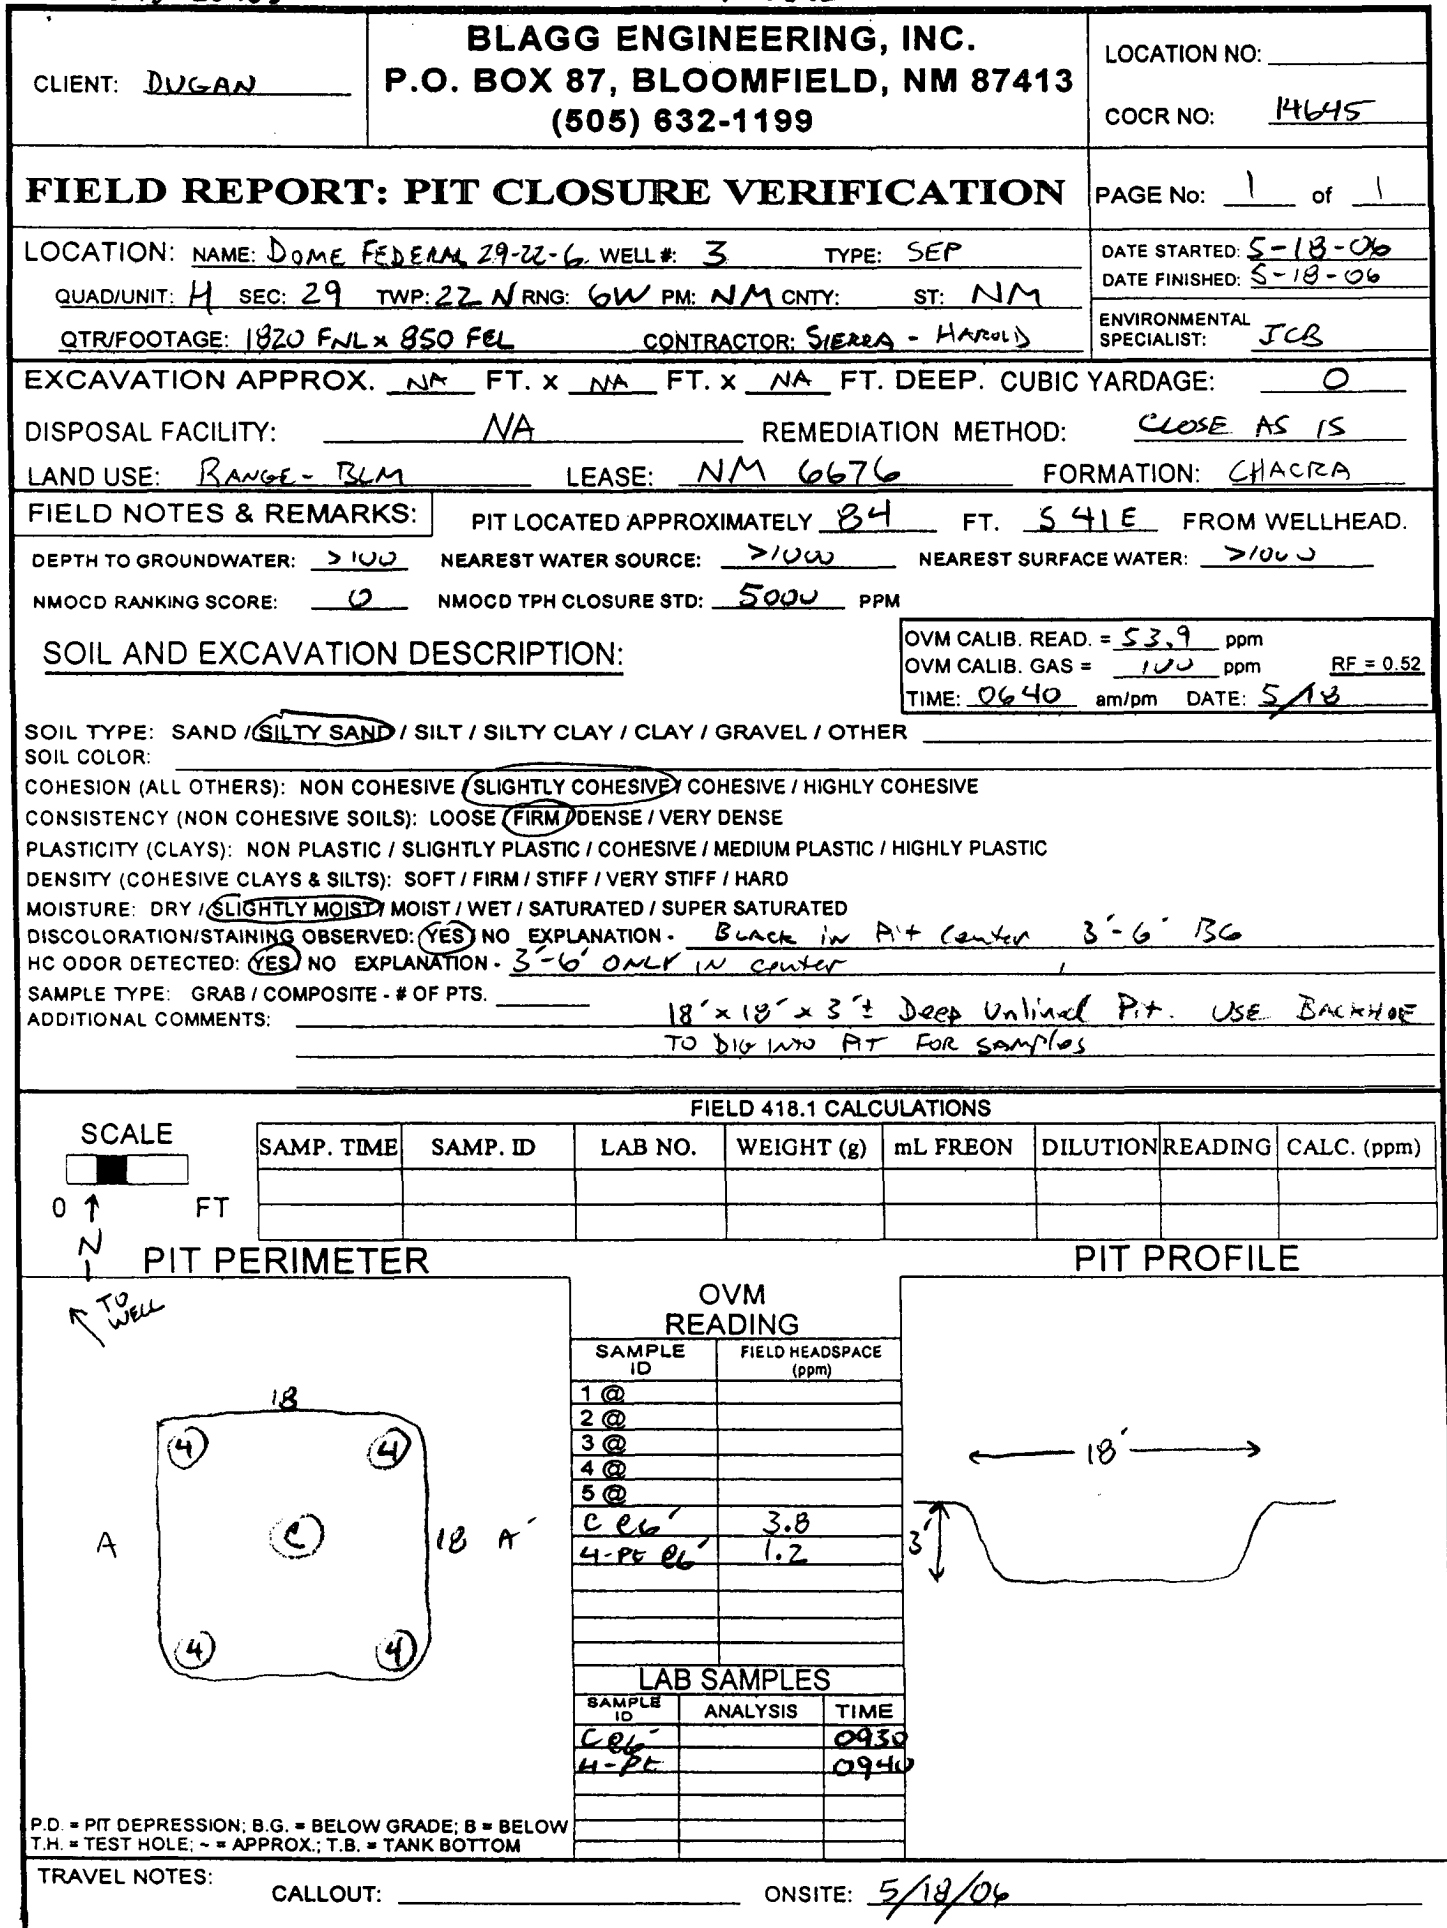 CLIENT: DUGAN
BLAGG ENGINEERING, INC.
P.O. BOX 87, BLOOMFIELD, NM 87413
(505) 632-1199
LOCATION NO:
COCR NO: 14645
FIELD REPORT: PIT CLOSURE VERIFICATION
PAGE No: 1 of 1
LOCATION: NAME: DOME FEDERAL 29-22-6 WELL #: 3 TYPE: SEP
QUAD/UNIT: H SEC: 29 TWP: 22 N RNG: 6W PM: NM CNTY: ST: NM
QTR/FOOTAGE: 1820 FNL x 850 FEL CONTRACTOR: SIERRA - HAROLD
DATE STARTED: 5-18-06
DATE FINISHED: 5-18-06
ENVIRONMENTAL
SPECIALIST: JCB
EXCAVATION APPROX. NA FT. x NA FT. x NA FT. DEEP. CUBIC YARDAGE: 0
DISPOSAL FACILITY: NA REMEDIATION METHOD: CLOSE AS IS
LAND USE: RANGE - BLM LEASE: NM 6676 FORMATION: CHACRA
FIELD NOTES & REMARKS: PIT LOCATED APPROXIMATELY 84 FT. S 41 E FROM WELLHEAD.
DEPTH TO GROUNDWATER: >100 NEAREST WATER SOURCE: >1000 NEAREST SURFACE WATER: >1000
NMOCD RANKING SCORE: 0 NMOCD TPH CLOSURE STD: 5000 PPM
SOIL AND EXCAVATION DESCRIPTION:
OVM CALIB. READ. = 53.9 ppm
OVM CALIB. GAS = 100 ppm RF = 0.52
TIME: 0640 am/pm DATE: 5/18
SOIL TYPE: SAND / SILTY SAND / SILT / SILTY CLAY / CLAY / GRAVEL / OTHER
SOIL COLOR:
COHESION (ALL OTHERS): NON COHESIVE / SLIGHTLY COHESIVE / COHESIVE / HIGHLY COHESIVE
CONSISTENCY (NON COHESIVE SOILS): LOOSE / FIRM / DENSE / VERY DENSE
PLASTICITY (CLAYS): NON PLASTIC / SLIGHTLY PLASTIC / COHESIVE / MEDIUM PLASTIC / HIGHLY PLASTIC
DENSITY (COHESIVE CLAYS & SILTS): SOFT / FIRM / STIFF / VERY STIFF / HARD
MOISTURE: DRY / SLIGHTLY MOIST / MOIST / WET / SATURATED / SUPER SATURATED
DISCOLORATION/STAINING OBSERVED: YES / NO EXPLANATION - BLACK in Pit Center 3'-6' BG
HC ODOR DETECTED: YES / NO EXPLANATION - 3'-6' ONLY IN center
SAMPLE TYPE: GRAB / COMPOSITE - # OF PTS.
ADDITIONAL COMMENTS: 18' x 18' x 3'± Deep Unlined Pit. USE BACKHOE
TO DIG INTO PIT FOR SAMPLES
FIELD 418.1 CALCULATIONS
SCALE
SAMP. TIME SAMP. ID LAB NO. WEIGHT (g) mL FREON DILUTION READING CALC. (ppm)
0 FT
N
PIT PERIMETER
PIT PROFILE
TO WELL
OVM
READING
SAMPLE ID FIELD HEADSPACE (ppm)
1 @
2 @
3 @
4 @
5 @
C @6' 3.8
4-Pt @6' 1.2
18
4 4
A C 18 A'
4 4
18'
3'
LAB SAMPLES
SAMPLE ID ANALYSIS TIME
C @6' 0930
4-Pt 0940
P.D. = PIT DEPRESSION; B.G. = BELOW GRADE; B = BELOW
T.H. = TEST HOLE; ~ = APPROX.; T.B. = TANK BOTTOM
TRAVEL NOTES:
CALLOUT: ONSITE: 5/18/06